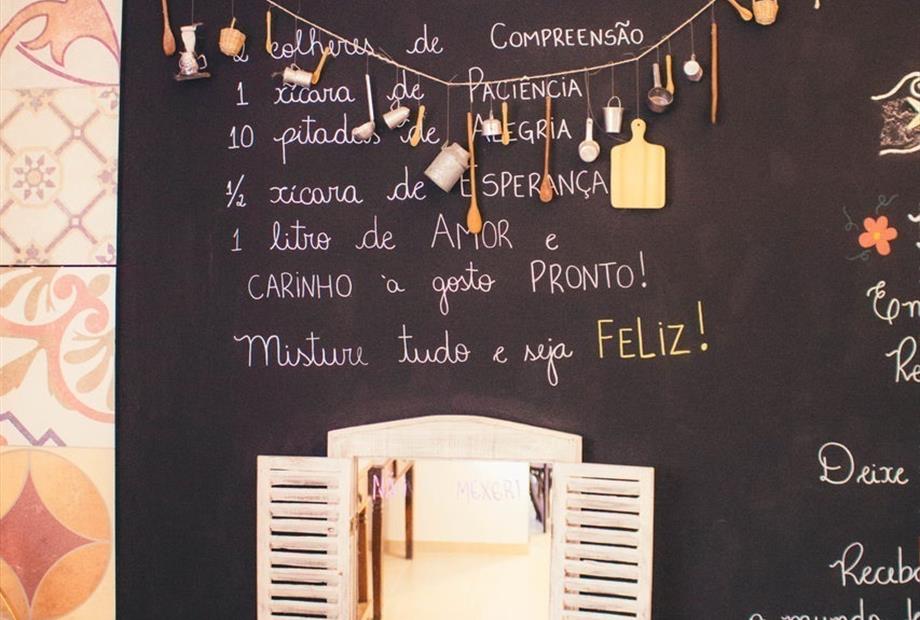 2 colheres de COMPREENSÃO
1 xícara de PACIÊNCIA
10 pitadas de ALEGRIA
1/2 xícara de ESPERANÇA
1 litro de AMOR e
CARINHO à gosto PRONTO!
Misture tudo e seja FELIZ!
NÃO MEXER!
Deixe
Receba
o mundo